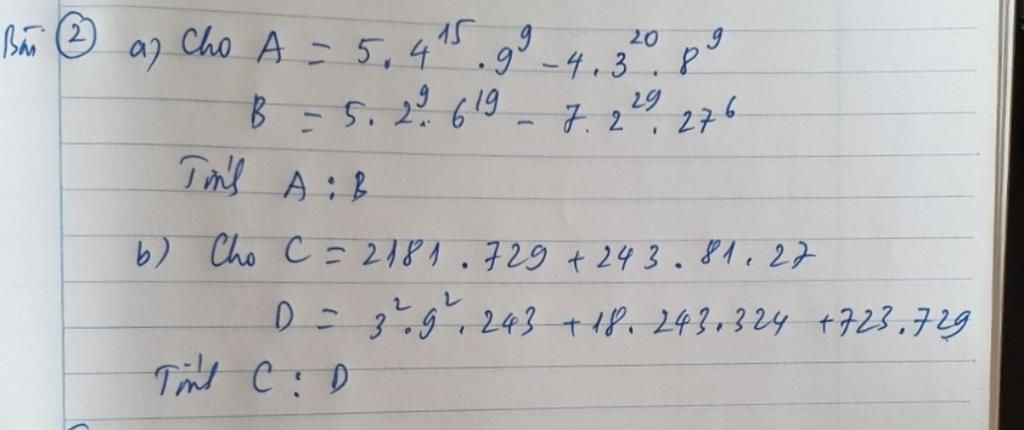 Bài ② a) Cho A = 5.4¹⁵.9⁹ - 4.3²⁰.8⁹
B = 5.2⁹.6¹⁹ - 7.2²⁹.27⁶
Tính A : B
b) Cho C = 2181.729 + 243.81.27
D = 3².9².243 + 18.243.324 + 723.729
Tính C : D